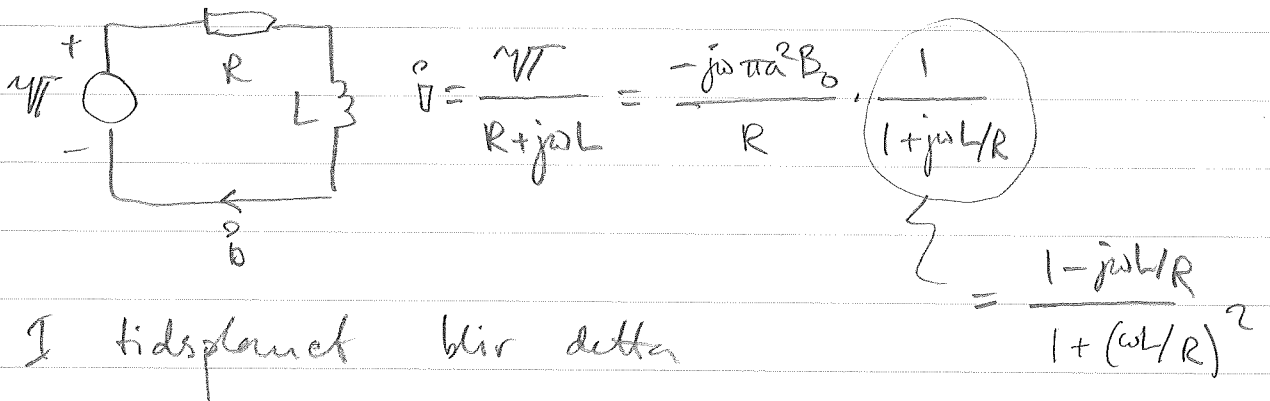 +
R
L
-
i = \frac{\mathcal{E}}{R+jωL} = \frac{-jωπa²B₀}{R} · \frac{1}{1+jωL/R}
i
= \frac{1-jωL/R}{1+(ωL/R)²}
I tidsplanet blir detta